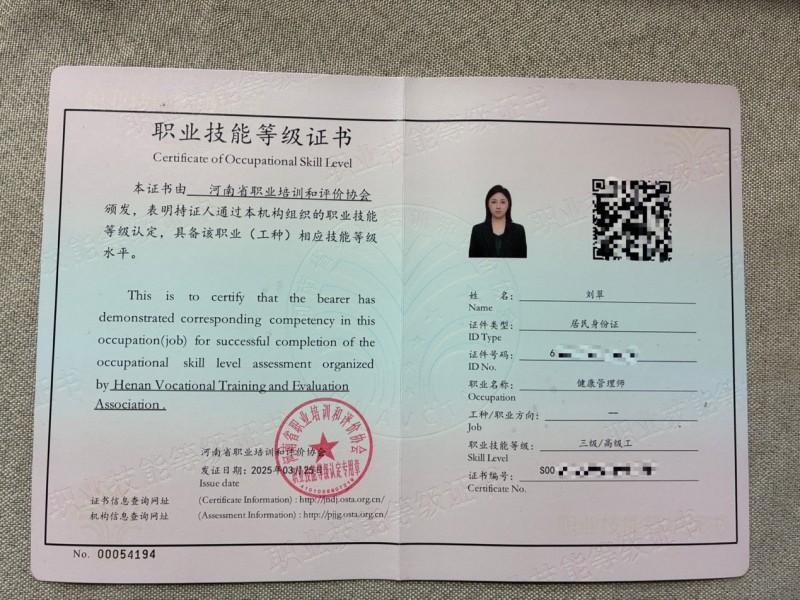 职业技能等级证书
Certificate of Occupational Skill Level
本证书由 河南省职业培训和评价协会
颁发，表明持证人通过本机构组织的职业技能
等级认定，具备该职业（工种）相应技能等级
水平。
This is to certify that the bearer has
demonstrated corresponding competency in this
occupation(job) for successful completion of the
occupational skill level assessment organized
by Henan Vocational Training and Evaluation
Association .
河南省职业培训和评价协会
发证日期：2025年03月25日
Issue date
河南省职业培训和评价协会
职业技能等级认定专用章
证书信息查询网址 (Certificate Information) : http://jndj.osta.org.cn/
机构信息查询网址 (Assessment Information) : http://pjjg.osta.org.cn/
No. 00054194
姓 名： 刘草
Name
证件类型： 居民身份证
ID Type
证件号码： 6
ID No.
职业名称： 健康管理师
Occupation
工种/职业方向： —
Job
职业技能等级： 三级/高级工
Skill Level
证书编号： S00
Certificate No.